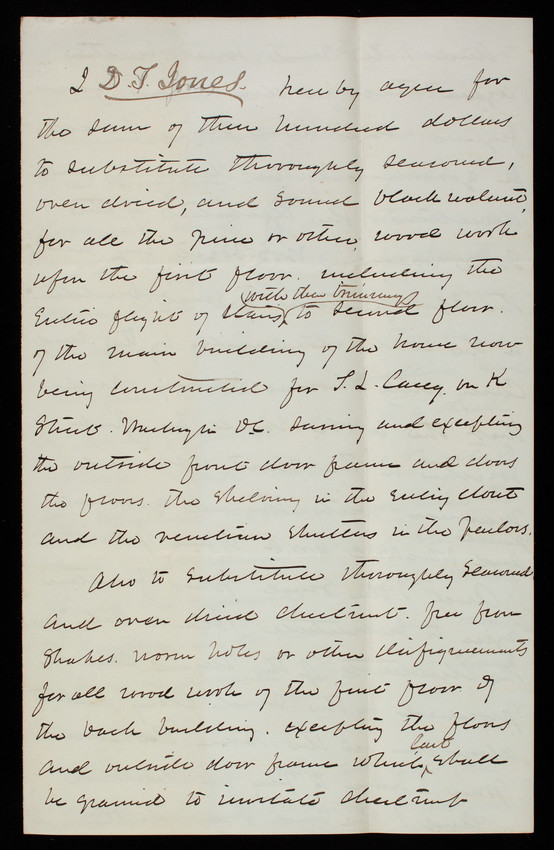 I D. T. Jones. hereby agree for
the sum of three hundred dollars
to substitute thoroughly seasoned,
oven dried, and sound black walnut,
for all the pine or other, wood work
upon the first floor. including the
entire flight of stairs, with their trimmings to second floor.
of the main building of the house now
being constructed for T. L. Casey. on K
Street. Washington D.C. saving and excepting
the outside front door frame and doors
the floors. the shelving in the
and the venetian shutters in the parlors.
Also to substitute thoroughly seasoned
and oven dried chestnut. free from
shakes. worm holes or other disfigurements
for all wood work of the first floor of
the back building. excepting the floors
and outside door frame which last shall
be grained to imitate chestnut